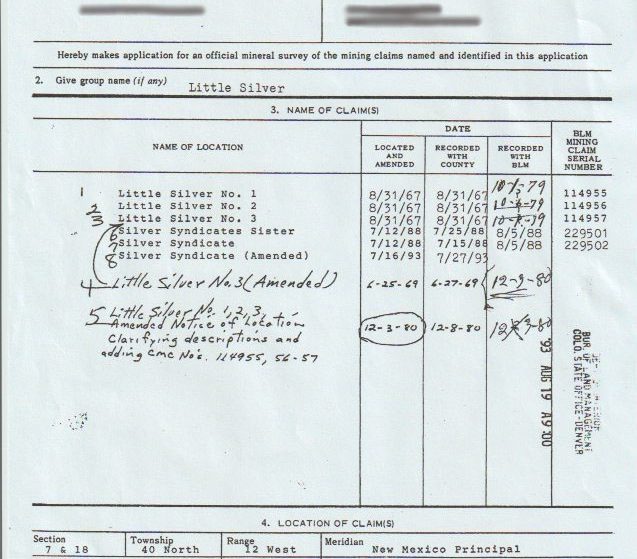 Hereby makes application for an official mineral survey of the mining claims named and identified in this application
2. Give group name (if any) Little Silver
3. NAME OF CLAIM(S)
NAME OF LOCATION
DATE
LOCATED AND AMENDED
RECORDED WITH COUNTY
RECORDED WITH BLM
BLM MINING CLAIM SERIAL NUMBER
1 Little Silver No. 1 8/31/67 8/31/67 79 114955
2 Little Silver No. 2 8/31/67 8/31/67 79 114956
3 Little Silver No. 3 8/31/67 8/31/67 114957
6 Silver Syndicates Sister 7/12/88 7/25/88 8/5/88 229501
7 Silver Syndicate 7/12/88 7/15/88 8/5/88 229502
8 Silver Syndicate (Amended) 7/16/93 7/27/93
4 Little Silver No. 3 (Amended) 6-25-69 6-27-69 80
5 Little Silver No. 1, 2, 3,
Amended Notice of Location 12-3-80 12-8-80
Clarifying descriptions and
adding CMC No's. 114955, 56-57
BUR. OF LAND MANAGEMENT
COLO. STATE OFFICE-DENVER
'93 AUG 19 A9:00
4. LOCATION OF CLAIM(S)
Section 7 & 18
Township 40 North
Range 12 West
Meridian New Mexico Principal